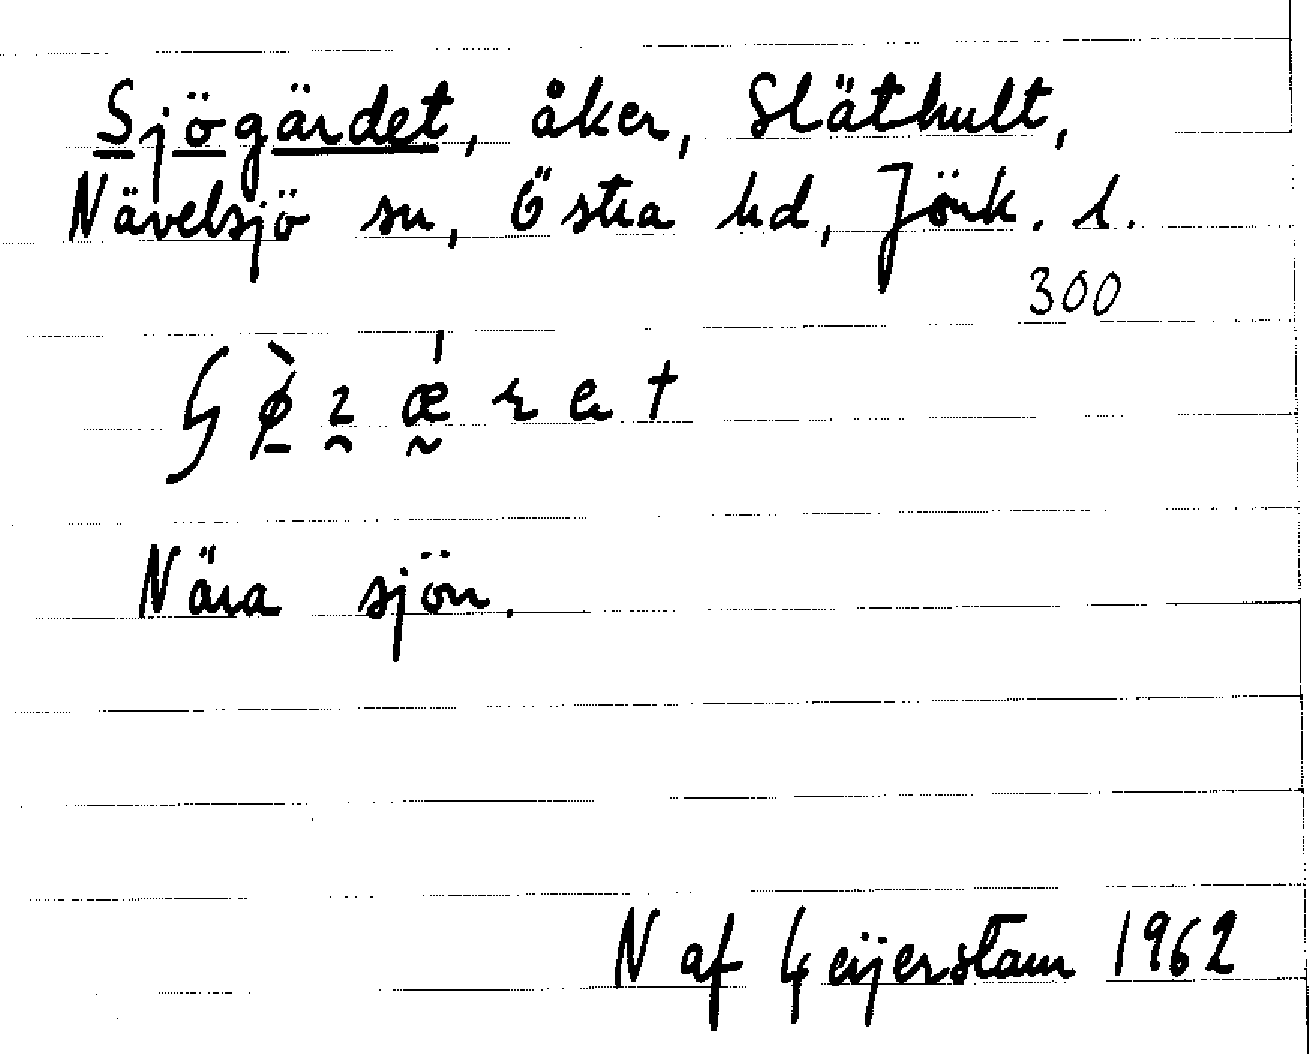 Sjögärdet, åker, Släthult,
Nävelsjö sn, Östra hd, Jönk. l.
300
Nära sjön.
N af Geijerstam 1962